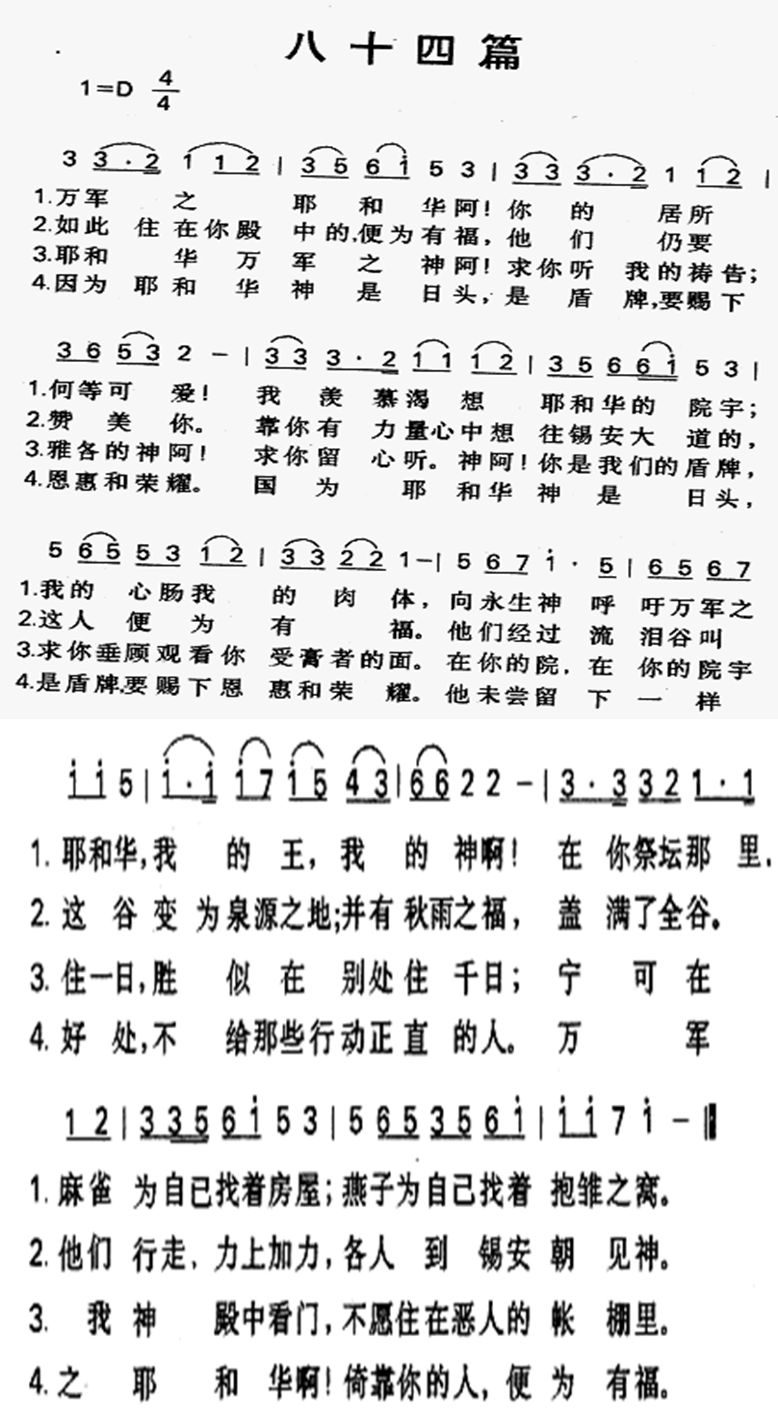 八十四篇
1=D 4/4
3 3·2 1 12 | 35 6i 5 3 | 33 3·2 1 12 |
1.万军之耶和华阿!你的居所
2.如此住在你殿中的,便为有福,他们仍要
3.耶和华万军之神阿!求你听我的祷告;
4.因为耶和华神是日头,是盾牌,要赐下
36 53 2 － | 33 3·2 11 12 | 35 66i 53 |
1.何等可爱!我羡慕渴想耶和华的院宇;
2.赞美你。靠你有力量心中想往锡安大道的,
3.雅各的神阿!求你留心听。神阿!你是我们的盾牌,
4.恩惠和荣耀。国为耶和华神是日头,
5 65 53 12 | 33 22 1－| 5 67 i· 5 | 65 67
1.我的心肠我的肉体,向永生神呼吁万军之
2.这人便为有福。他们经过流泪谷叫
3.求你垂顾观看你受膏者的面。在你的院,在你的院宇
4.是盾牌,要赐下恩惠和荣耀。他未尝留下一样
ii5 | i·i i7 i5 43 | 66 2 2 － | 3·3 32 1·1
1.耶和华,我的王,我的神啊!在你祭坛那里,
2.这谷变为泉源之地;并有秋雨之福,盖满了全谷。
3.住一日,胜似在别处住千日;宁可在
4.好处,不给那些行动正直的人。万军
12 | 335 6i 53 | 5 65 35 6i | ii 7 i － ‖
1.麻雀为自已找着房屋;燕子为自己找着抱雏之窝。
2.他们行走、力上加力,各人到锡安朝见神。
3.我神殿中看门,不愿住在恶人的帐棚里。
4.之耶和华啊!倚靠你的人,便为有福。